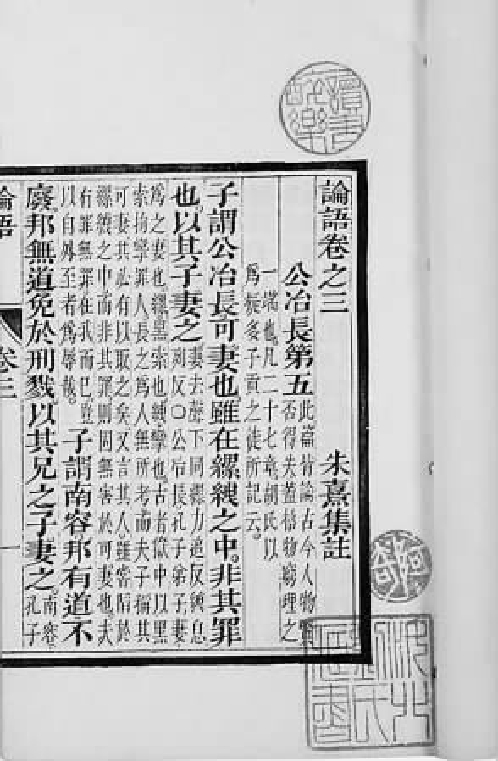 論語卷之三　朱熹集註
公冶長第五
此篇皆論古今人物賢
否得失蓋格物窮理之
一端也凡二十七章胡氏以
爲疑多子貢之徒所記云
子謂公冶長可妻也雖在縲絏之中。非其罪
也以其子妻之
妻去聲下同縲力追反絏息
列反○公冶長孔子弟子妻
爲之妻也縲黑索也絏攣也古者獄中以黑
索拘攣罪人長之爲人無所考而夫子稱其
可妻其必有以取之矣又言其人雖嘗陷於
縲絏之中而非其罪則固無害於可妻也夫
有罪無罪在我而已豈
以自外至者爲榮辱哉
子謂南容邦有道不
廢邦無道免於刑戮以其兄之子妻之
南容
孔子
論語
卷三
一